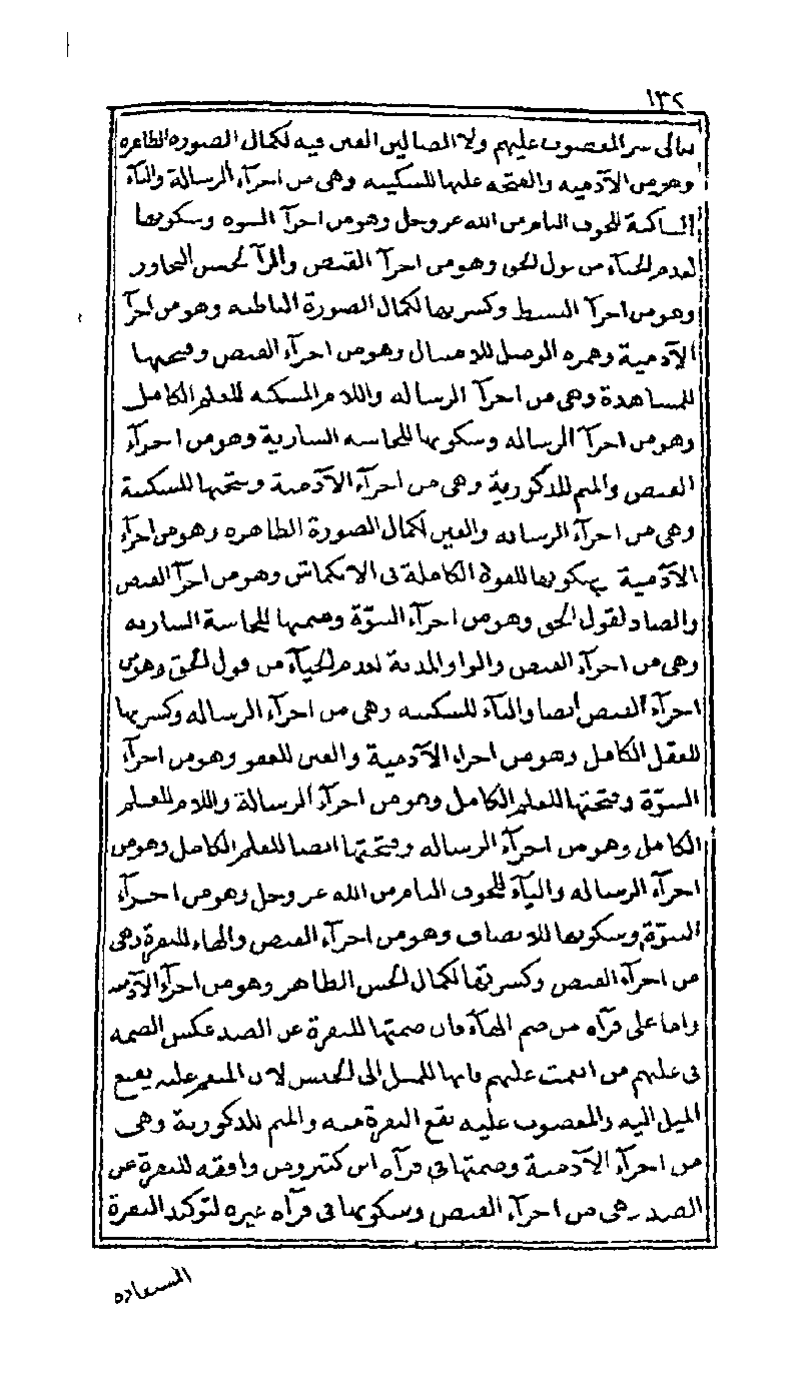 ١٣٢
تعالى سر المغضوب عليهم ولا الضالين الغين فيه لكمال الصورة الظاهرة
وهو من الآدمية والفتحة عليها للسكينة وهى من اجزآء الرسالة واليآء
الساكنة للخوف التام من الله عز وجل وهو من اجزآ النبوة وسكونها
لعدم الحيآء من قول الحق وهو من اجزآ القبض والرآ لحسن التجاوز
وهو من اجزآ البسط وكسرتها لكمال الصورة الباطنة وهو من اجزآ
الآدمية وهمزة الوصل للامتثال وهو من اجزآء القبض وفتحتها
للمشاهدة وهى من اجزآ الرسالة واللام المسكنة للعلم الكامل
وهو من اجزآ الرسالة وسكونها للحاسة السارية وهو من اجزآء
القبض والميم للذكورية وهى من اجزآء الآدمية وفتحتها للسكينة
وهى من اجزآء الرسالة والغين لكمال الصورة الظاهرة وهو من اجزآء
الآدمية وسكونها للقوة الكاملة فى الانكماش وهو من اجزآ القبض
والضاد لقول الحق وهو من اجزآء النبوّة وضمها للحاسة السارية
وهى من اجزآء القبض والواو المدية لعدم الحيآء من قول الحق وهو من
اجزآء القبض ايضا والبآء للسكينة وهى من اجزآء الرسالة وكسرتها
للعقل الكامل وهو من اجزاء الآدمية والعين للعفو وهو من اجزآء
النبوّة وفتحتها للعلم الكامل وهو من اجزآء الرسالة واللام للعلم
الكامل وهو من اجزآء الرسالة وفتحتها ايضا للعلم الكامل وهو من
اجزآء الرسالة واليآء للخوف التام من الله عز وجل وهو من اجزآء
النبوّة وسكونها للانصاف وهو من اجزآء القبض والهاء للنفرة وهى
من اجزآء القبض وكسرتها لكمال الحس الظاهر وهو من اجزآء الآدمية
واما على قرآءة من ضم الهآء فان ضمتها للنفرة عن الضد عكس الضمة
فى عليهم من انعمت عليهم فانها للميل الى الجنس لان المنعم عليه يقع
الميل اليه والمغضوب عليه تقع النفرة منه والميم للذكورية وهى
من اجزآء الآدمية وضمتها فى قرآءة ابن كثير ومن وافقه للنفرة عن
الضد وهى من اجزآء القبض وسكونها فى قرآءة غيره لتوكيد النفرة